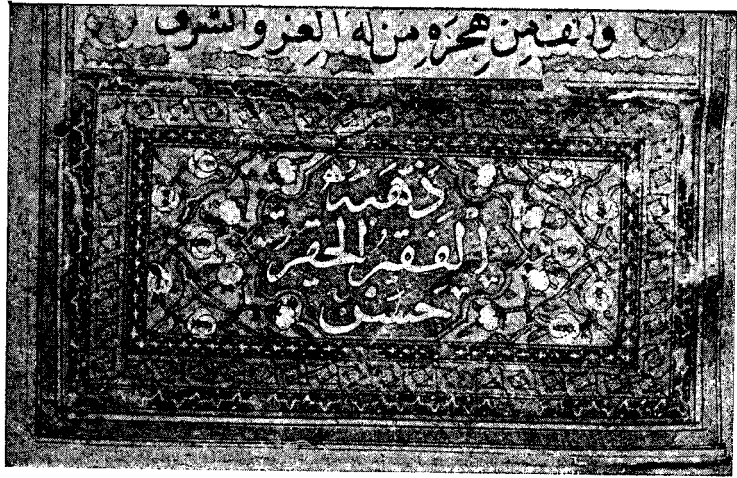 والف من هجرة من له العز والشرف
ذَهَّبَهُ
الفقيرُ الحقيرُ
حَسَن